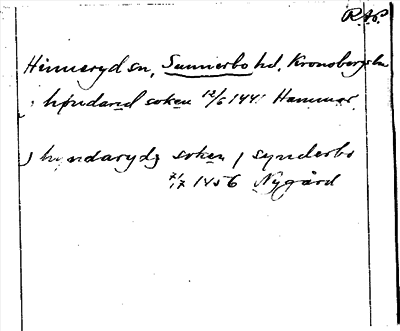 RAP
Hinneryd sn, Sunnerbo hd, Kronobergs län
i høndarid soken 12/6 1441 Hammar
j hyndarydz soken j synderbo
7/17 1456 Nygård